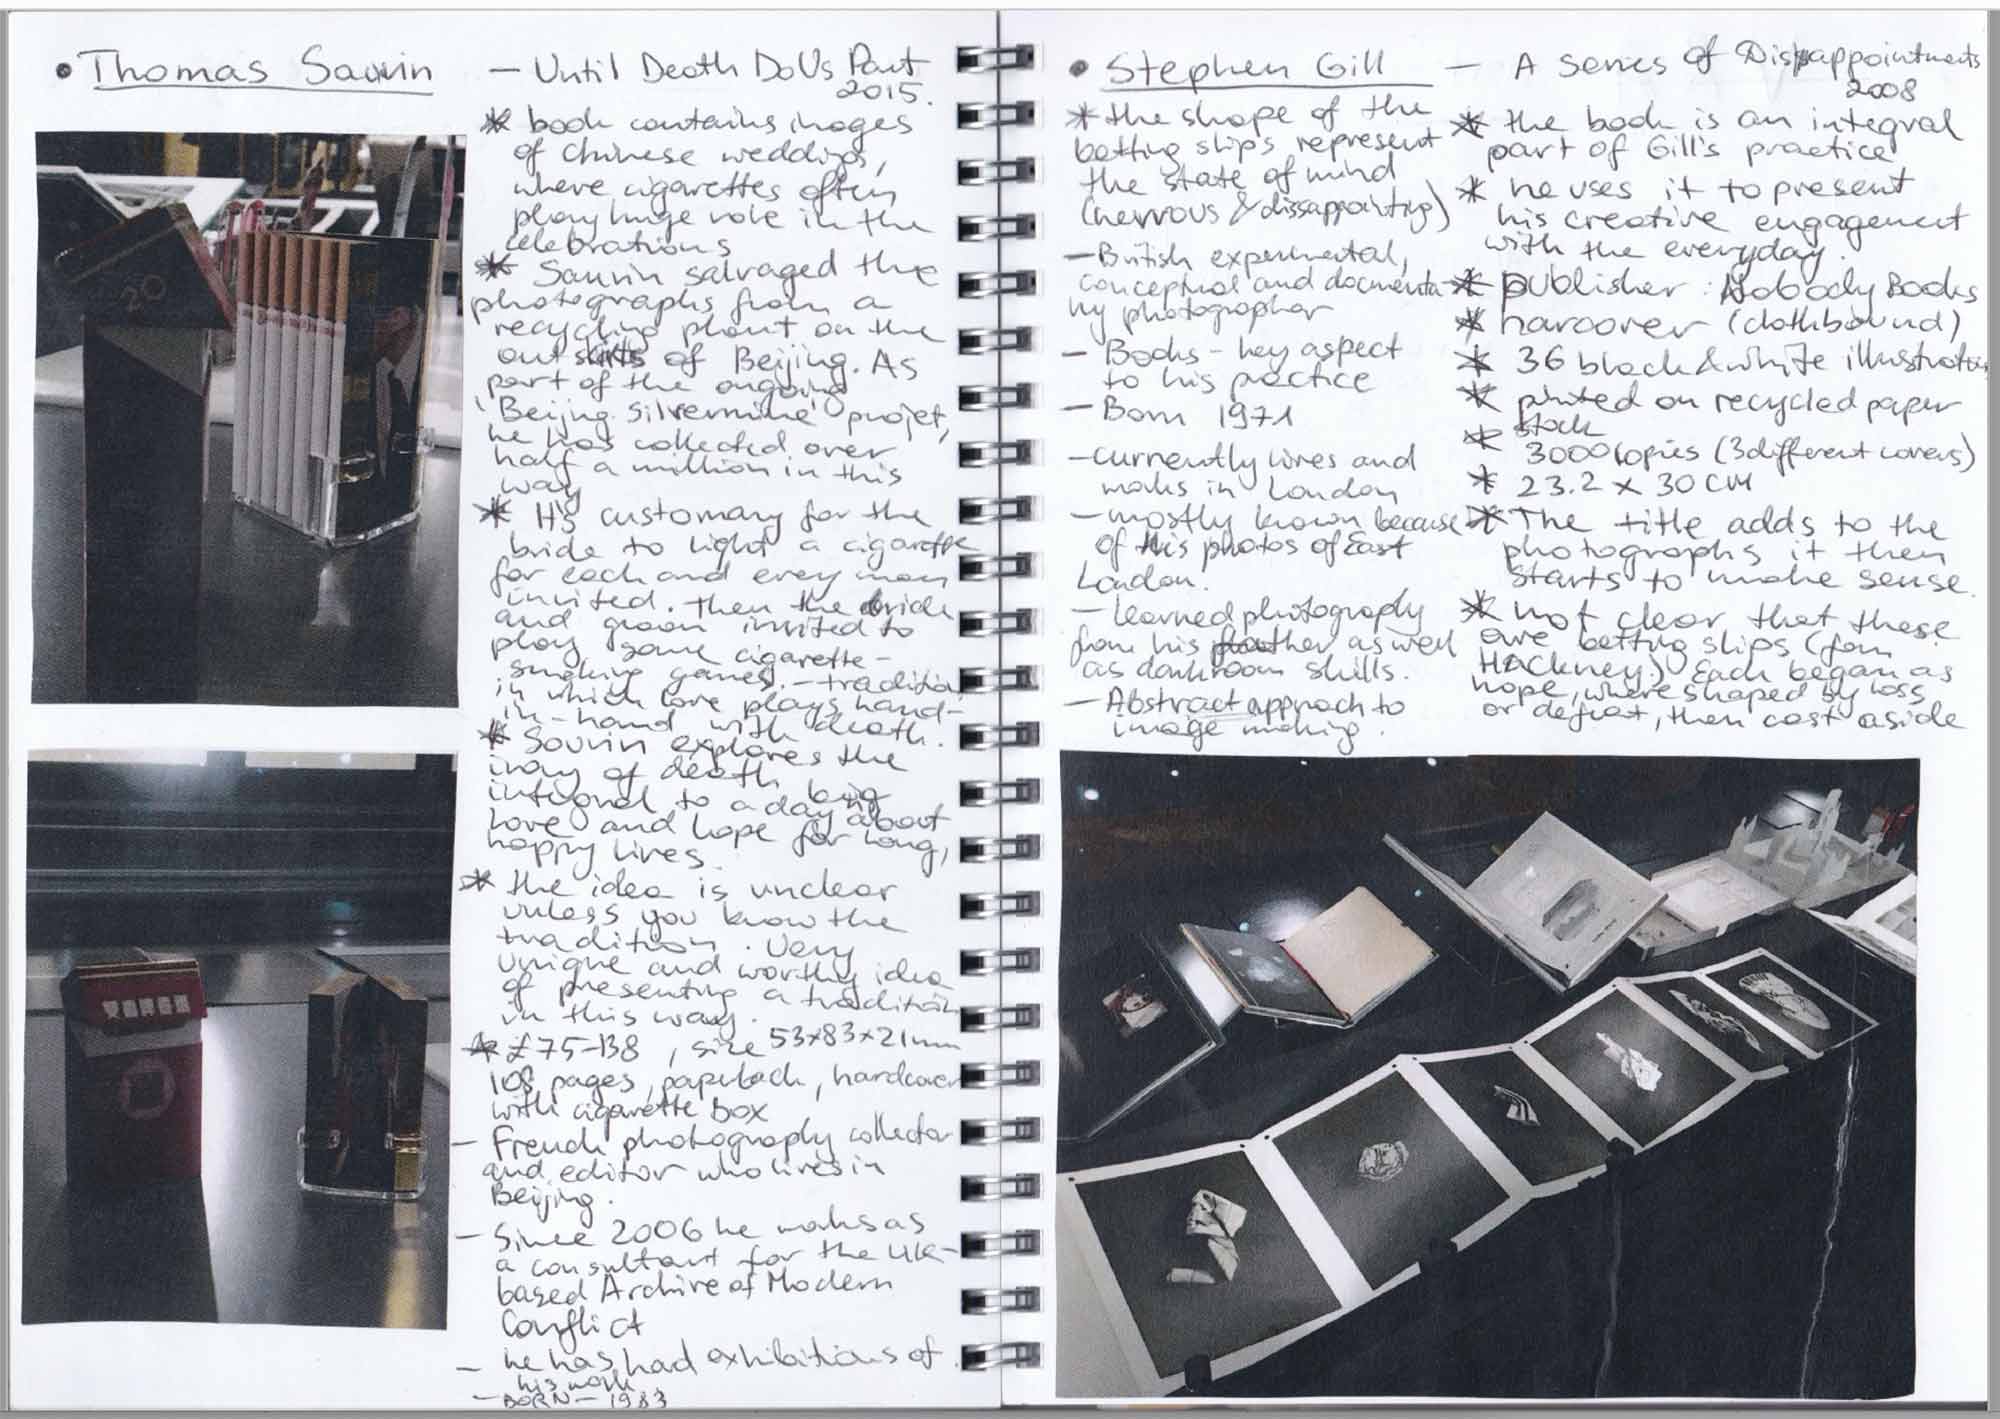 • Thomas Sauvin
— Until Death Do Us Part
2015.
* book contains images
of chinese weddings,
where cigarettes often
play huge role in the
celebrations
* Sauvin salvaged the
photographs from a
recycling plant on the
outskirts of Beijing. As
part of the ongoing
'Beijing Silvermine' projet,
he has collected over
half a million in this
way
* It's customary for the
bride to light a cigarette
for each and every man
invited. Then the bride
and groom invited to
play some cigarette-
smoking games. — tradition
in which love plays hand-
in-hand with death.
* Sauvin explores the
irony of death being
integral to a day about
love and hope for long,
happy lives.
* the idea is unclear
unless you know the
tradition. Very
unique and worthy idea
of presenting a tradition
in this way.
* £75-138, size 53x83x21mm
108 pages, paperback, hardcover
with cigarette box
— French photography collector
and editor who lives in
Beijing.
— Since 2006 he works as
a consultant for the UK-
based Archive of Modern
Conflict
— he has had exhibitions of
his work
— BORN — 1983
20
• Stephen Gill
— A series of Disappointments
2008
* the shape of the
betting slips represent
the state of mind
(nervous & dissappointing)
— British experimental,
conceptual and documenta
ry photographer
— Books - key aspect
to his practice
— Born 1971
— currently lives and
works in London
— mostly known because
of his photos of East
London.
— learned photography
from his father as well
as darkroom skills.
— Abstract approach to
image making.
* the book is an integral
part of Gill's practice
* he uses it to present
his creative engagement
with the everyday.
* publisher: Nobody Books
* harcover (clothbound)
* 36 black & white illustrations
* printed on recycled paper
stock
* 3000 copies (3 different covers)
* 23.2 x 30 CM
* The title adds to the
photographs it then
starts to make sense.
* not clear that these
are betting slips (from
HACKney.) Each began as
hope, where shaped by loss
or defeat, then cast aside